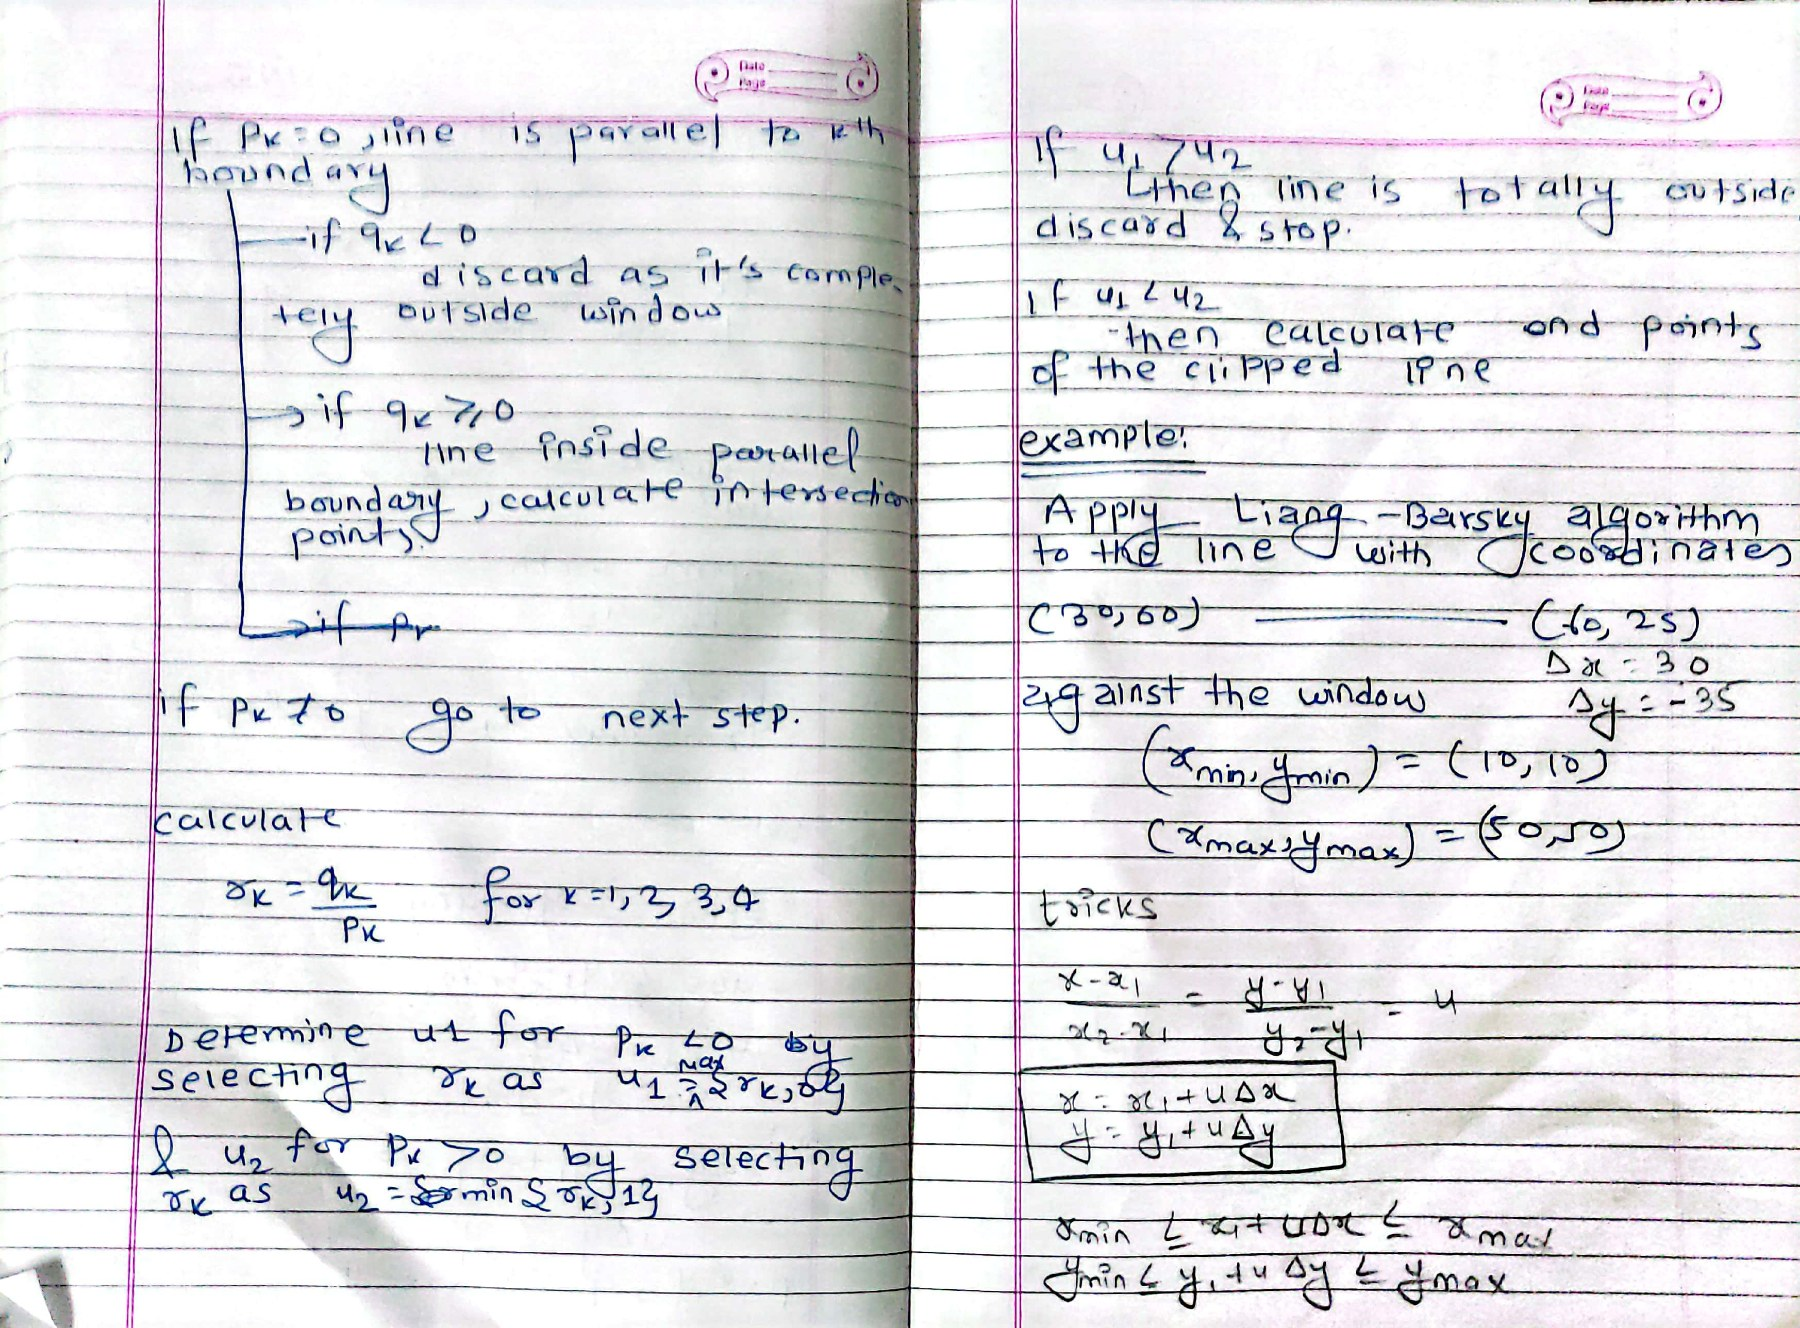 Date
Page
If Pk = 0, line is parallel to kth
boundary
if qk < 0
discard as it's comple-
tely outside window
if qk ≥ 0
line inside parallel
boundary, calculate intersection
points.
if Pk
if Pk ≠ 0 go to next step.
calculate
rk = qk/Pk for k=1, 2, 3, 4
Determine u1 for Pk < 0 by
selecting rk as u1 = max {rk, 0}
& u2 for Pk > 0 by selecting
rk as u2 = min {rk, 1}
Date
Page
If u1 > u2
then line is totally outside
discard & stop.
if u1 < u2
then calculate end points
of the clipped line
example:
Apply Liang-Barsky algorithm
to the line with coordinates
(30, 60) (60, 25)
Δx = 30
against the window Δy = -35
(xmin, ymin) = (10, 10)
(xmax, ymax) = (50, 50)
tricks
x-x1/x2-x1 = y-y1/y2-y1 = u
x = x1 + uΔx
y = y1 + uΔy
xmin ≤ x1 + uΔx ≤ xmax
ymin ≤ y1 + uΔy ≤ ymax